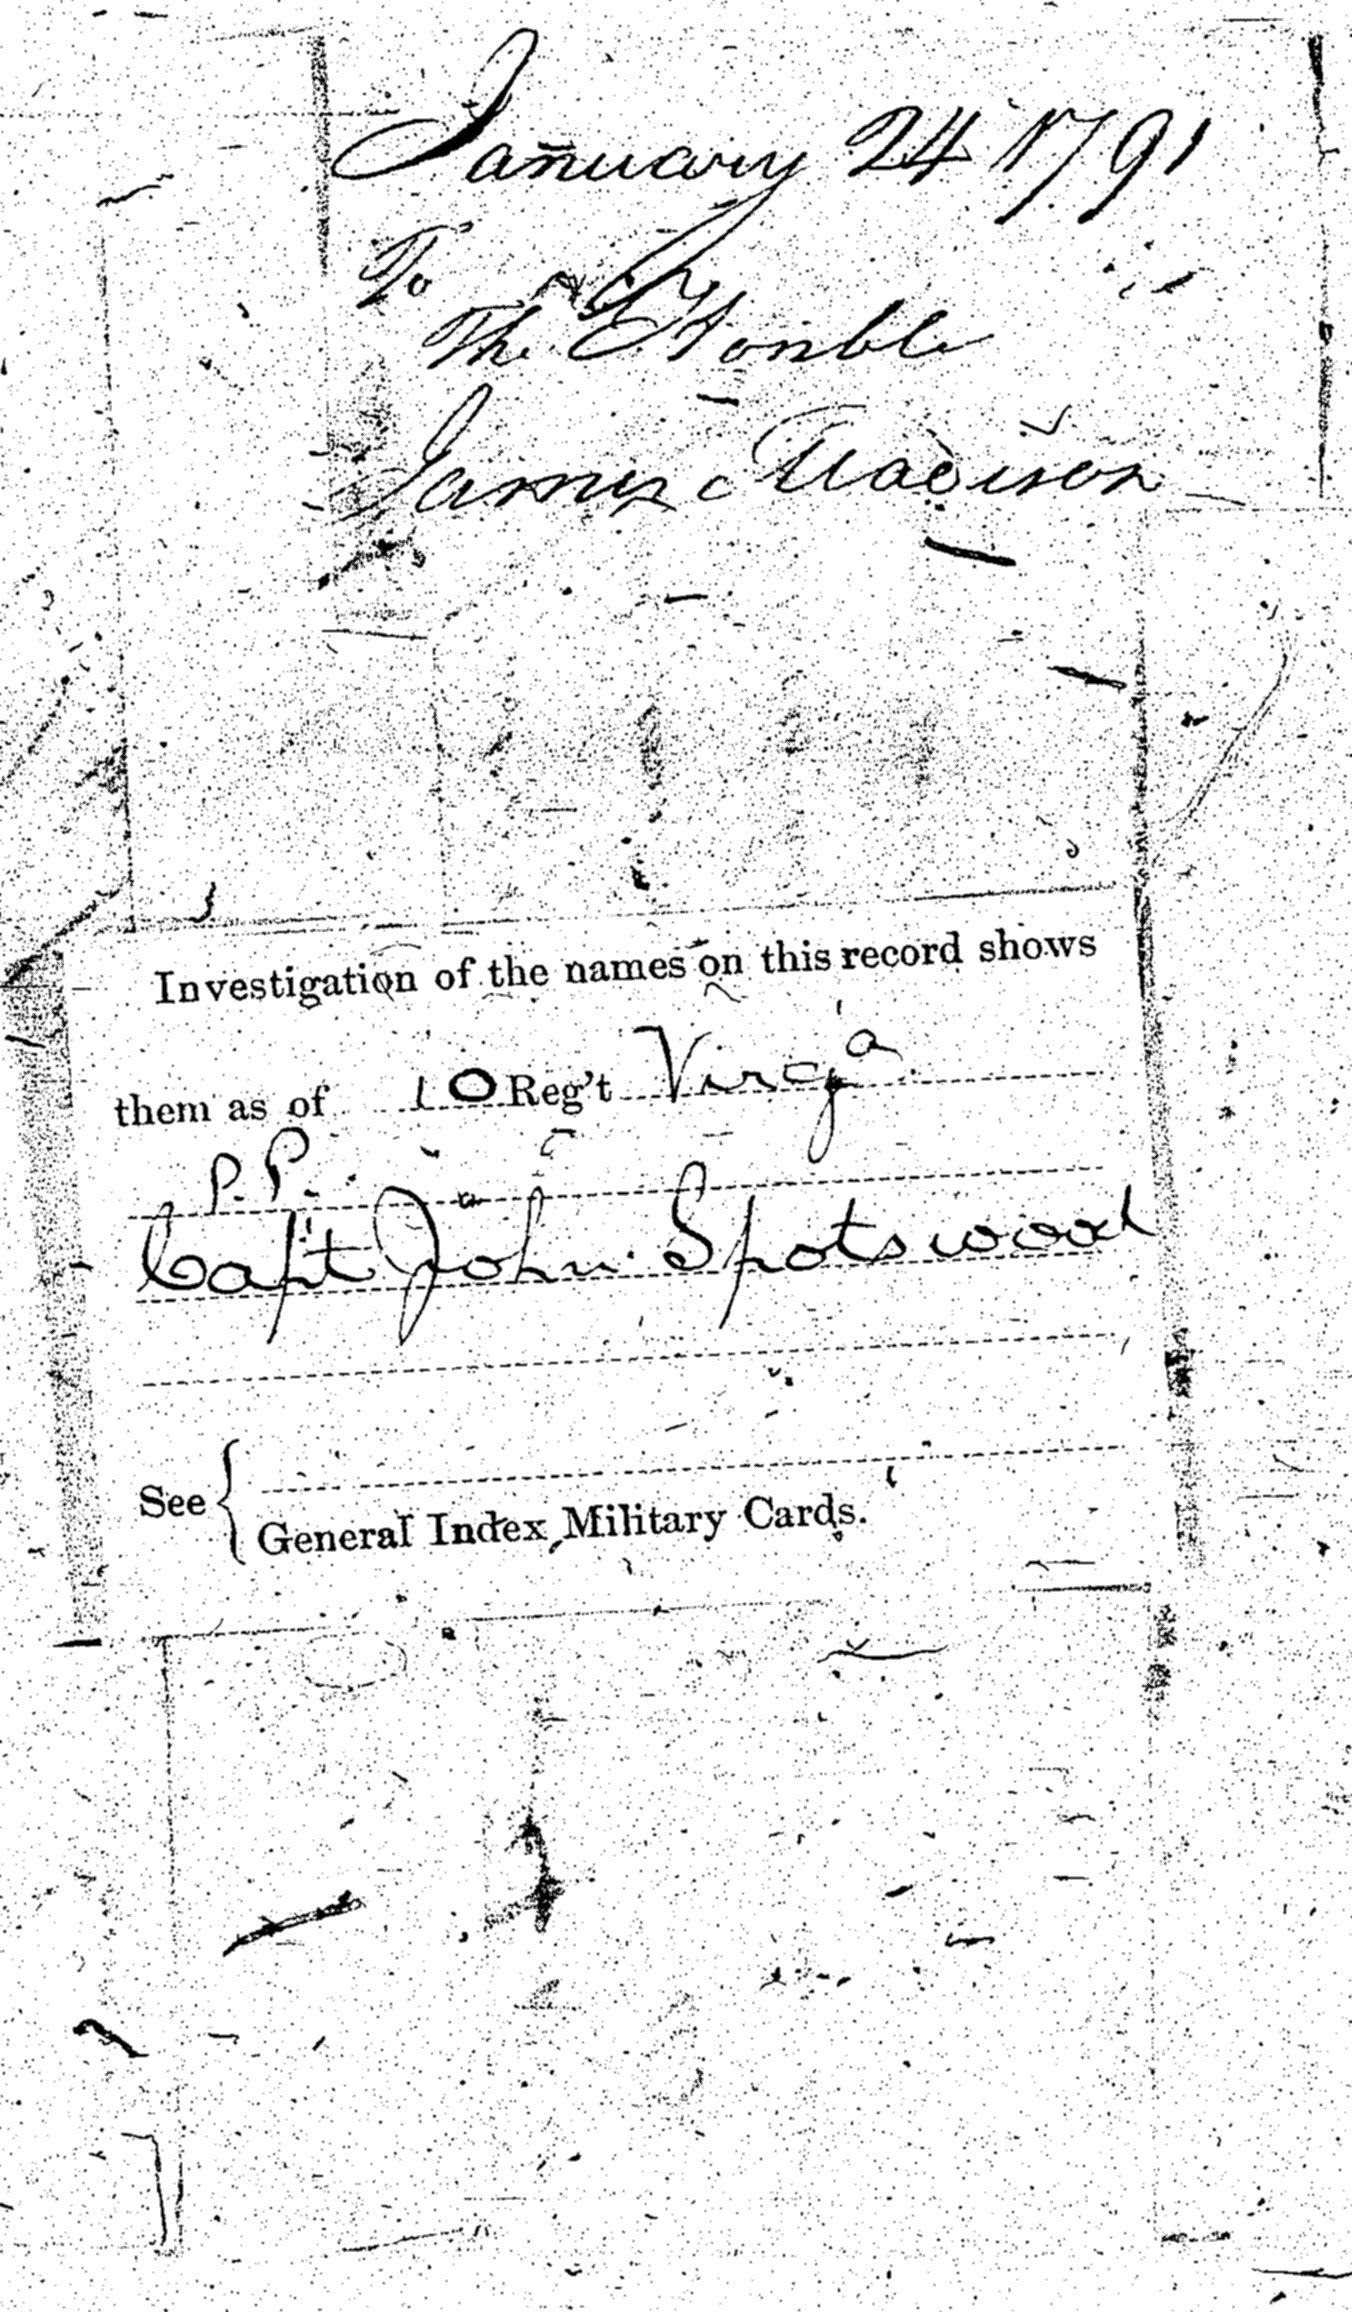 January 24 1791
To
The Honble
James Madison
Investigation of the names on this record shows
them as of 10 Reg't Virga
P. P.
Capt John Spotswood
See {
General Index Military Cards.